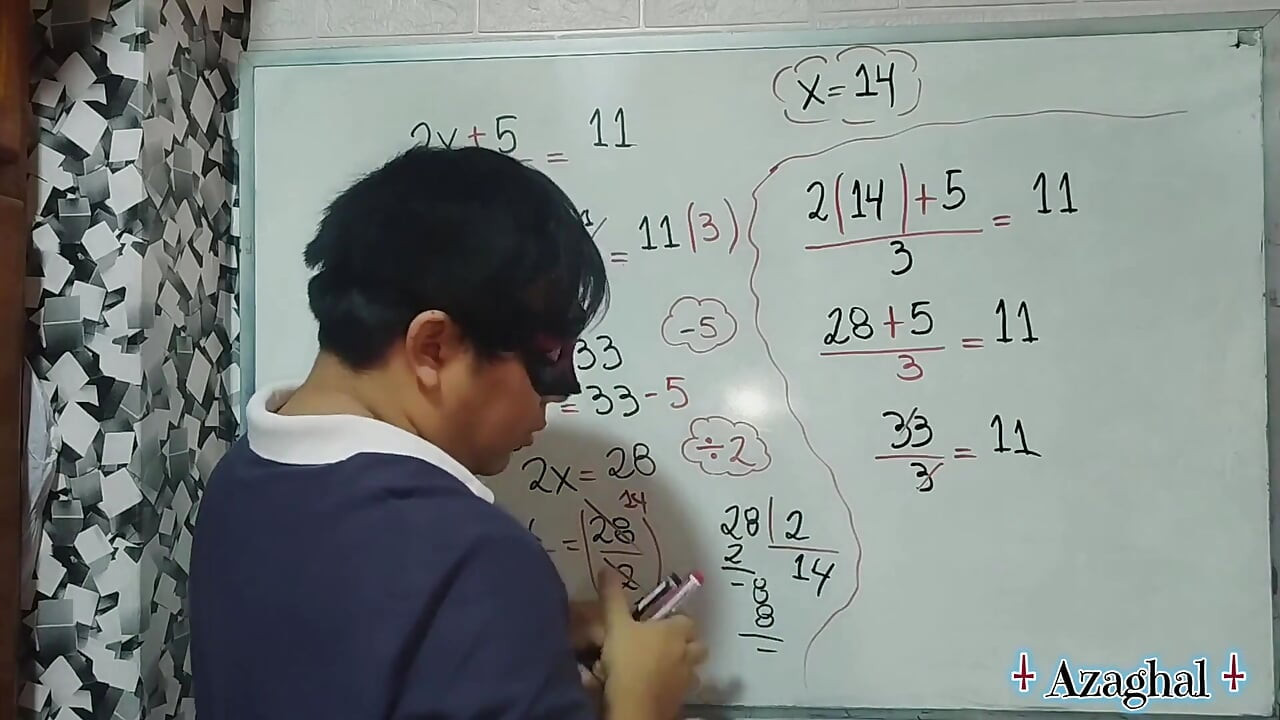 x=14
2x+5 = 11
= 11(3)
33
-5
=33-5
2x=28
÷2
14
= (28
2)
28|2
2 14
-8
8
2(14)+5 = 11
3
28+5 = 11
3
33 = 11
3
Azaghal